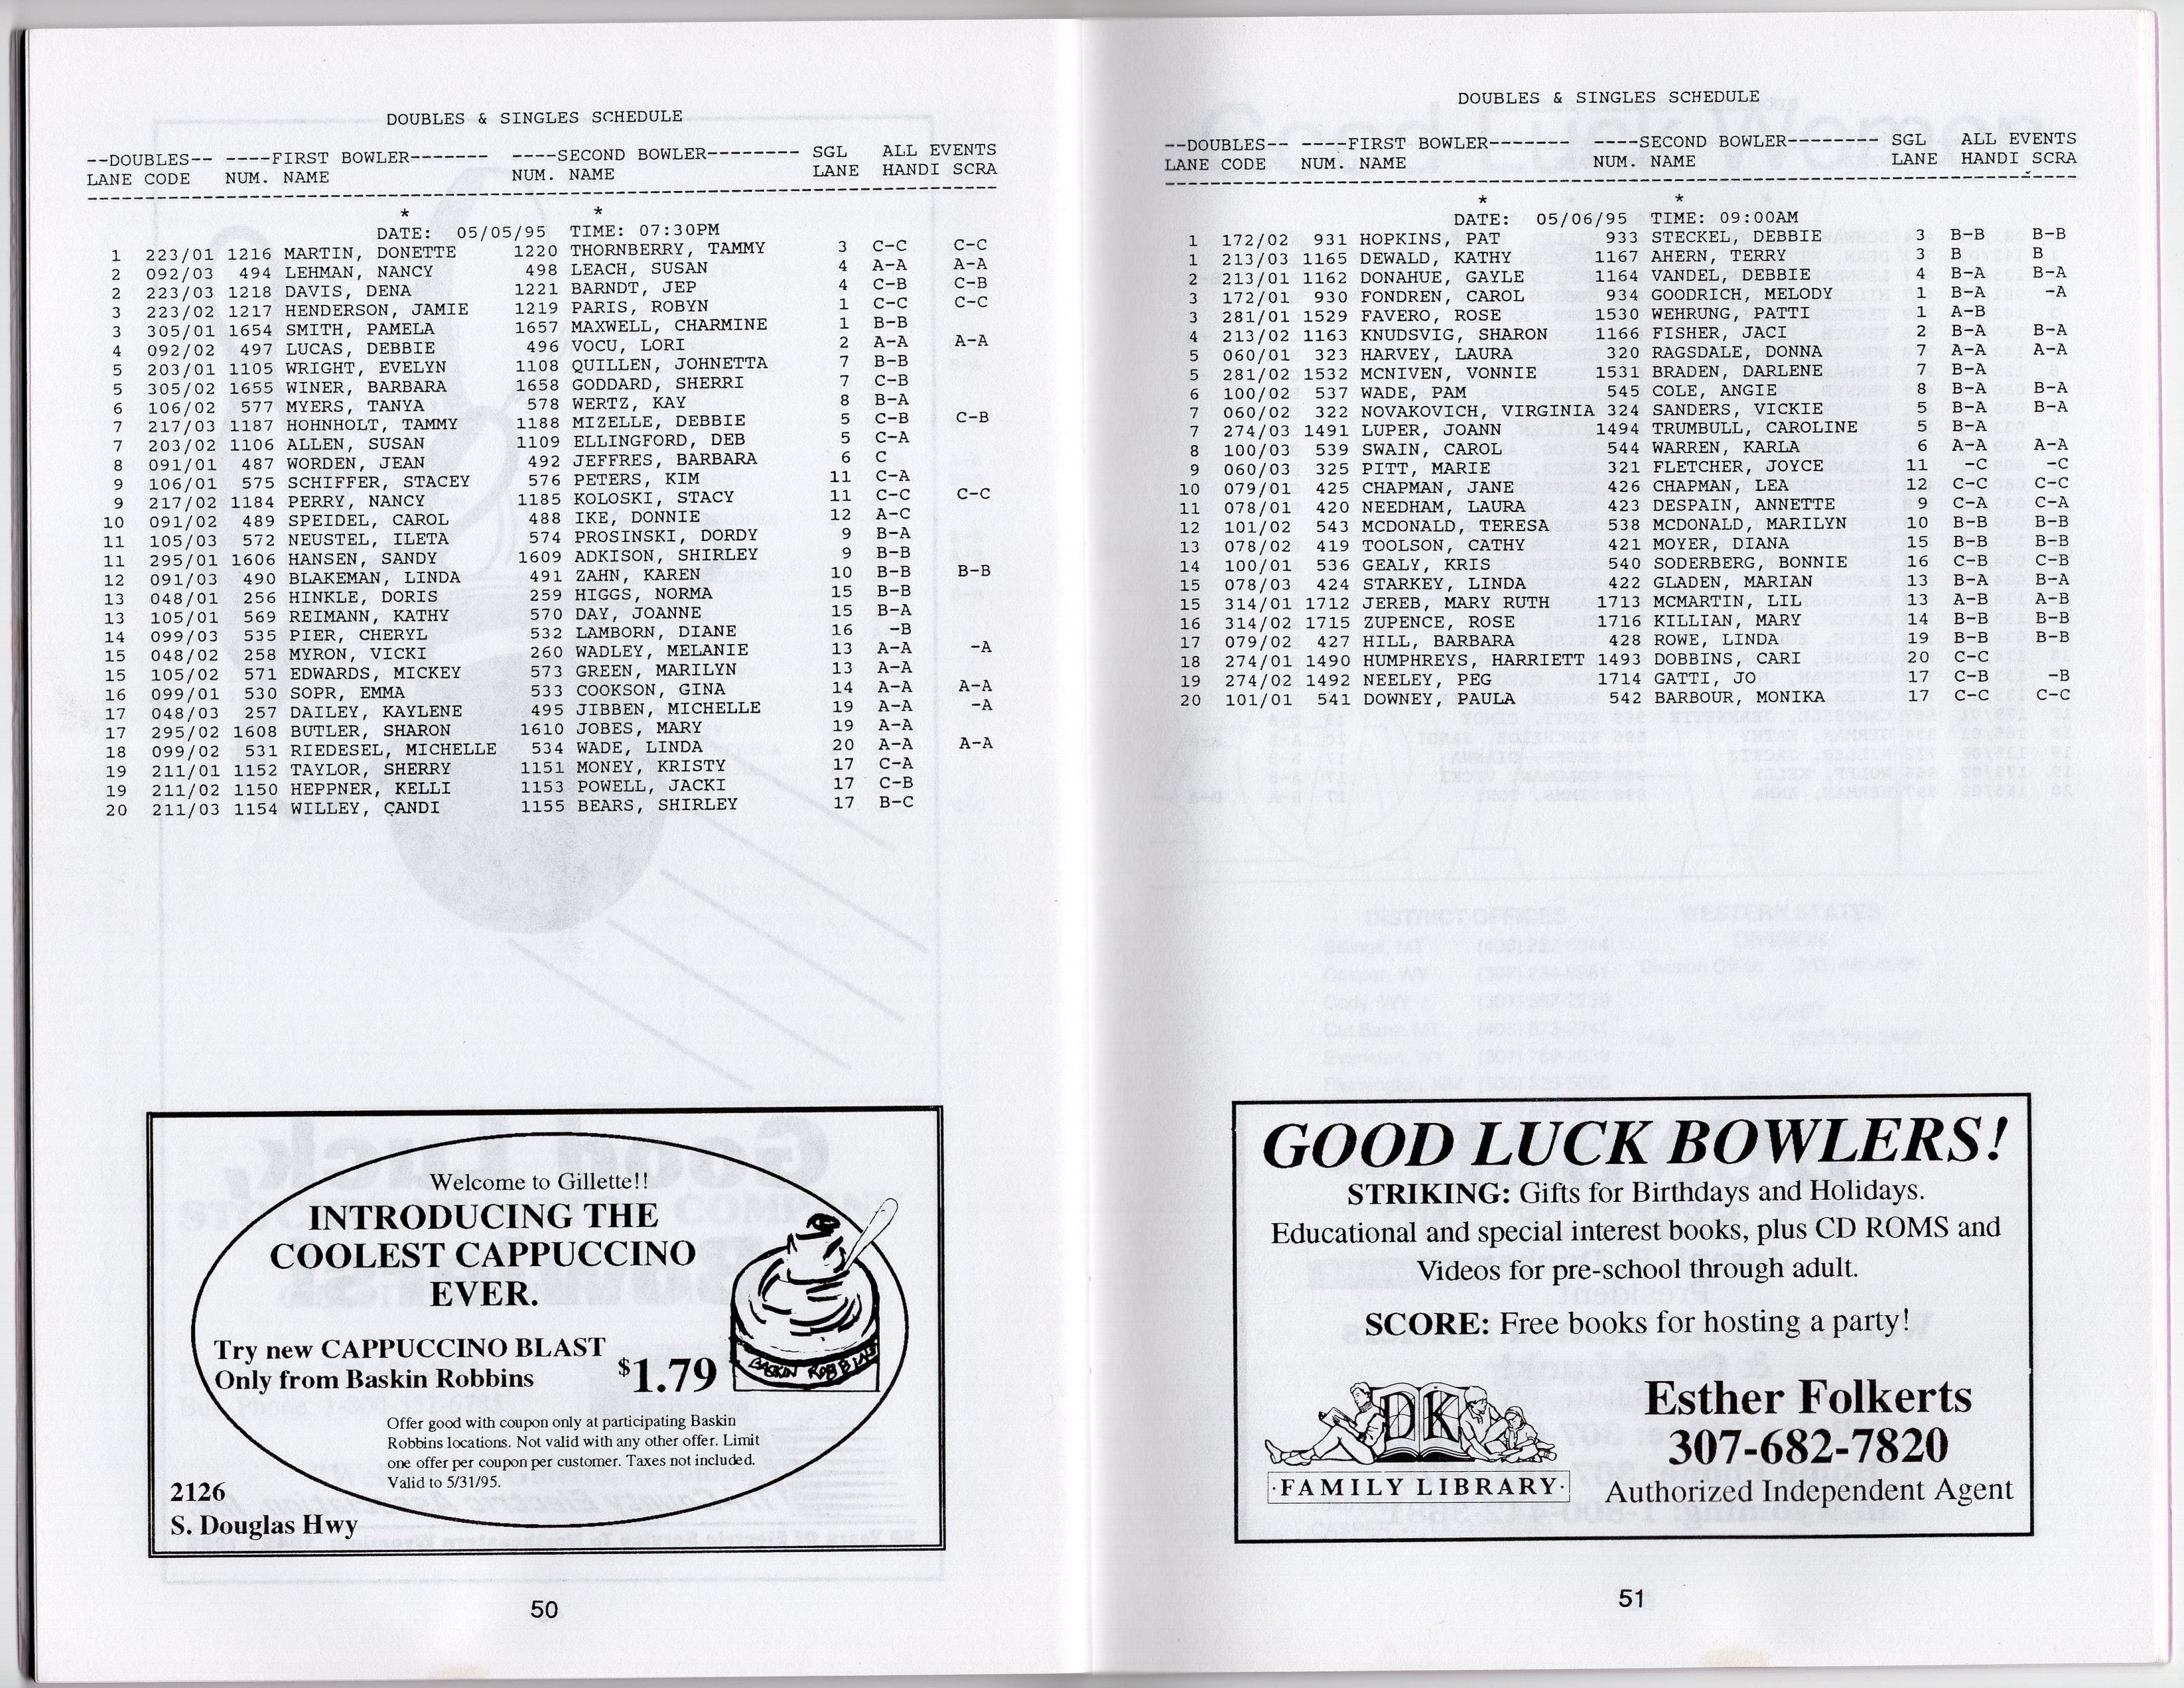 DOUBLES & SINGLES SCHEDULE
--DOUBLES-- ----FIRST BOWLER------- ----SECOND BOWLER-------- SGL ALL EVENTS
LANE CODE NUM. NAME NUM. NAME LANE HANDI SCRA
* *
DATE: 05/05/95 TIME: 07:30PM
1 223/01 1216 MARTIN, DONETTE 1220 THORNBERRY, TAMMY 3 C-C C-C
2 092/03 494 LEHMAN, NANCY 498 LEACH, SUSAN 4 A-A A-A
2 223/03 1218 DAVIS, DENA 1221 BARNDT, JEP 4 C-B C-B
3 223/02 1217 HENDERSON, JAMIE 1219 PARIS, ROBYN 1 C-C C-C
3 305/01 1654 SMITH, PAMELA 1657 MAXWELL, CHARMINE 1 B-B
4 092/02 497 LUCAS, DEBBIE 496 VOCU, LORI 2 A-A A-A
5 203/01 1105 WRIGHT, EVELYN 1108 QUILLEN, JOHNETTA 7 B-B
5 305/02 1655 WINER, BARBARA 1658 GODDARD, SHERRI 7 C-B
6 106/02 577 MYERS, TANYA 578 WERTZ, KAY 8 B-A
7 217/03 1187 HOHNHOLT, TAMMY 1188 MIZELLE, DEBBIE 5 C-B C-B
7 203/02 1106 ALLEN, SUSAN 1109 ELLINGFORD, DEB 5 C-A
8 091/01 487 WORDEN, JEAN 492 JEFFRES, BARBARA 6 C
9 106/01 575 SCHIFFER, STACEY 576 PETERS, KIM 11 C-A
9 217/02 1184 PERRY, NANCY 1185 KOLOSKI, STACY 11 C-C C-C
10 091/02 489 SPEIDEL, CAROL 488 IKE, DONNIE 12 A-C
11 105/03 572 NEUSTEL, ILETA 574 PROSINSKI, DORDY 9 B-A
11 295/01 1606 HANSEN, SANDY 1609 ADKISON, SHIRLEY 9 B-B
12 091/03 490 BLAKEMAN, LINDA 491 ZAHN, KAREN 10 B-B B-B
13 048/01 256 HINKLE, DORIS 259 HIGGS, NORMA 15 B-B
13 105/01 569 REIMANN, KATHY 570 DAY, JOANNE 15 B-A
14 099/03 535 PIER, CHERYL 532 LAMBORN, DIANE 16 -B
15 048/02 258 MYRON, VICKI 260 WADLEY, MELANIE 13 A-A -A
15 105/02 571 EDWARDS, MICKEY 573 GREEN, MARILYN 13 A-A
16 099/01 530 SOPR, EMMA 533 COOKSON, GINA 14 A-A A-A
17 048/03 257 DAILEY, KAYLENE 495 JIBBEN, MICHELLE 19 A-A -A
17 295/02 1608 BUTLER, SHARON 1610 JOBES, MARY 19 A-A
18 099/02 531 RIEDESEL, MICHELLE 534 WADE, LINDA 20 A-A A-A
19 211/01 1152 TAYLOR, SHERRY 1151 MONEY, KRISTY 17 C-A
19 211/02 1150 HEPPNER, KELLI 1153 POWELL, JACKI 17 C-B
20 211/03 1154 WILLEY, CANDI 1155 BEARS, SHIRLEY 17 B-C
Welcome to Gillette!!
INTRODUCING THE
COOLEST CAPPUCCINO
EVER.
Try new CAPPUCCINO BLAST
Only from Baskin Robbins $1.79
BASKIN ROBBINS
Offer good with coupon only at participating Baskin
Robbins locations. Not valid with any other offer. Limit
one offer per coupon per customer. Taxes not included.
Valid to 5/31/95.
2126
S. Douglas Hwy
50
DOUBLES & SINGLES SCHEDULE
--DOUBLES-- ----FIRST BOWLER------- ----SECOND BOWLER-------- SGL ALL EVENTS
LANE CODE NUM. NAME NUM. NAME LANE HANDI SCRA
* *
DATE: 05/06/95 TIME: 09:00AM
1 172/02 931 HOPKINS, PAT 933 STECKEL, DEBBIE 3 B-B B-B
1 213/03 1165 DEWALD, KATHY 1167 AHERN, TERRY 3 B B
2 213/01 1162 DONAHUE, GAYLE 1164 VANDEL, DEBBIE 4 B-A B-A
3 172/01 930 FONDREN, CAROL 934 GOODRICH, MELODY 1 B-A -A
3 281/01 1529 FAVERO, ROSE 1530 WEHRUNG, PATTI 1 A-B
4 213/02 1163 KNUDSVIG, SHARON 1166 FISHER, JACI 2 B-A B-A
5 060/01 323 HARVEY, LAURA 320 RAGSDALE, DONNA 7 A-A A-A
5 281/02 1532 MCNIVEN, VONNIE 1531 BRADEN, DARLENE 7 B-A
6 100/02 537 WADE, PAM 545 COLE, ANGIE 8 B-A B-A
7 060/02 322 NOVAKOVICH, VIRGINIA 324 SANDERS, VICKIE 5 B-A B-A
7 274/03 1491 LUPER, JOANN 1494 TRUMBULL, CAROLINE 5 B-A
8 100/03 539 SWAIN, CAROL 544 WARREN, KARLA 6 A-A A-A
9 060/03 325 PITT, MARIE 321 FLETCHER, JOYCE 11 -C -C
10 079/01 425 CHAPMAN, JANE 426 CHAPMAN, LEA 12 C-C C-C
11 078/01 420 NEEDHAM, LAURA 423 DESPAIN, ANNETTE 9 C-A C-A
12 101/02 543 MCDONALD, TERESA 538 MCDONALD, MARILYN 10 B-B B-B
13 078/02 419 TOOLSON, CATHY 421 MOYER, DIANA 15 B-B B-B
14 100/01 536 GEALY, KRIS 540 SODERBERG, BONNIE 16 C-B C-B
15 078/03 424 STARKEY, LINDA 422 GLADEN, MARIAN 13 B-A B-A
15 314/01 1712 JEREB, MARY RUTH 1713 MCMARTIN, LIL 13 A-B A-B
16 314/02 1715 ZUPENCE, ROSE 1716 KILLIAN, MARY 14 B-B B-B
17 079/02 427 HILL, BARBARA 428 ROWE, LINDA 19 B-B B-B
18 274/01 1490 HUMPHREYS, HARRIETT 1493 DOBBINS, CARI 20 C-C
19 274/02 1492 NEELEY, PEG 1714 GATTI, JO 17 C-B -B
20 101/01 541 DOWNEY, PAULA 542 BARBOUR, MONIKA 17 C-C C-C
GOOD LUCK BOWLERS!
STRIKING: Gifts for Birthdays and Holidays.
Educational and special interest books, plus CD ROMS and
Videos for pre-school through adult.
SCORE: Free books for hosting a party!
DK
·FAMILY LIBRARY·
Esther Folkerts
307-682-7820
Authorized Independent Agent
51